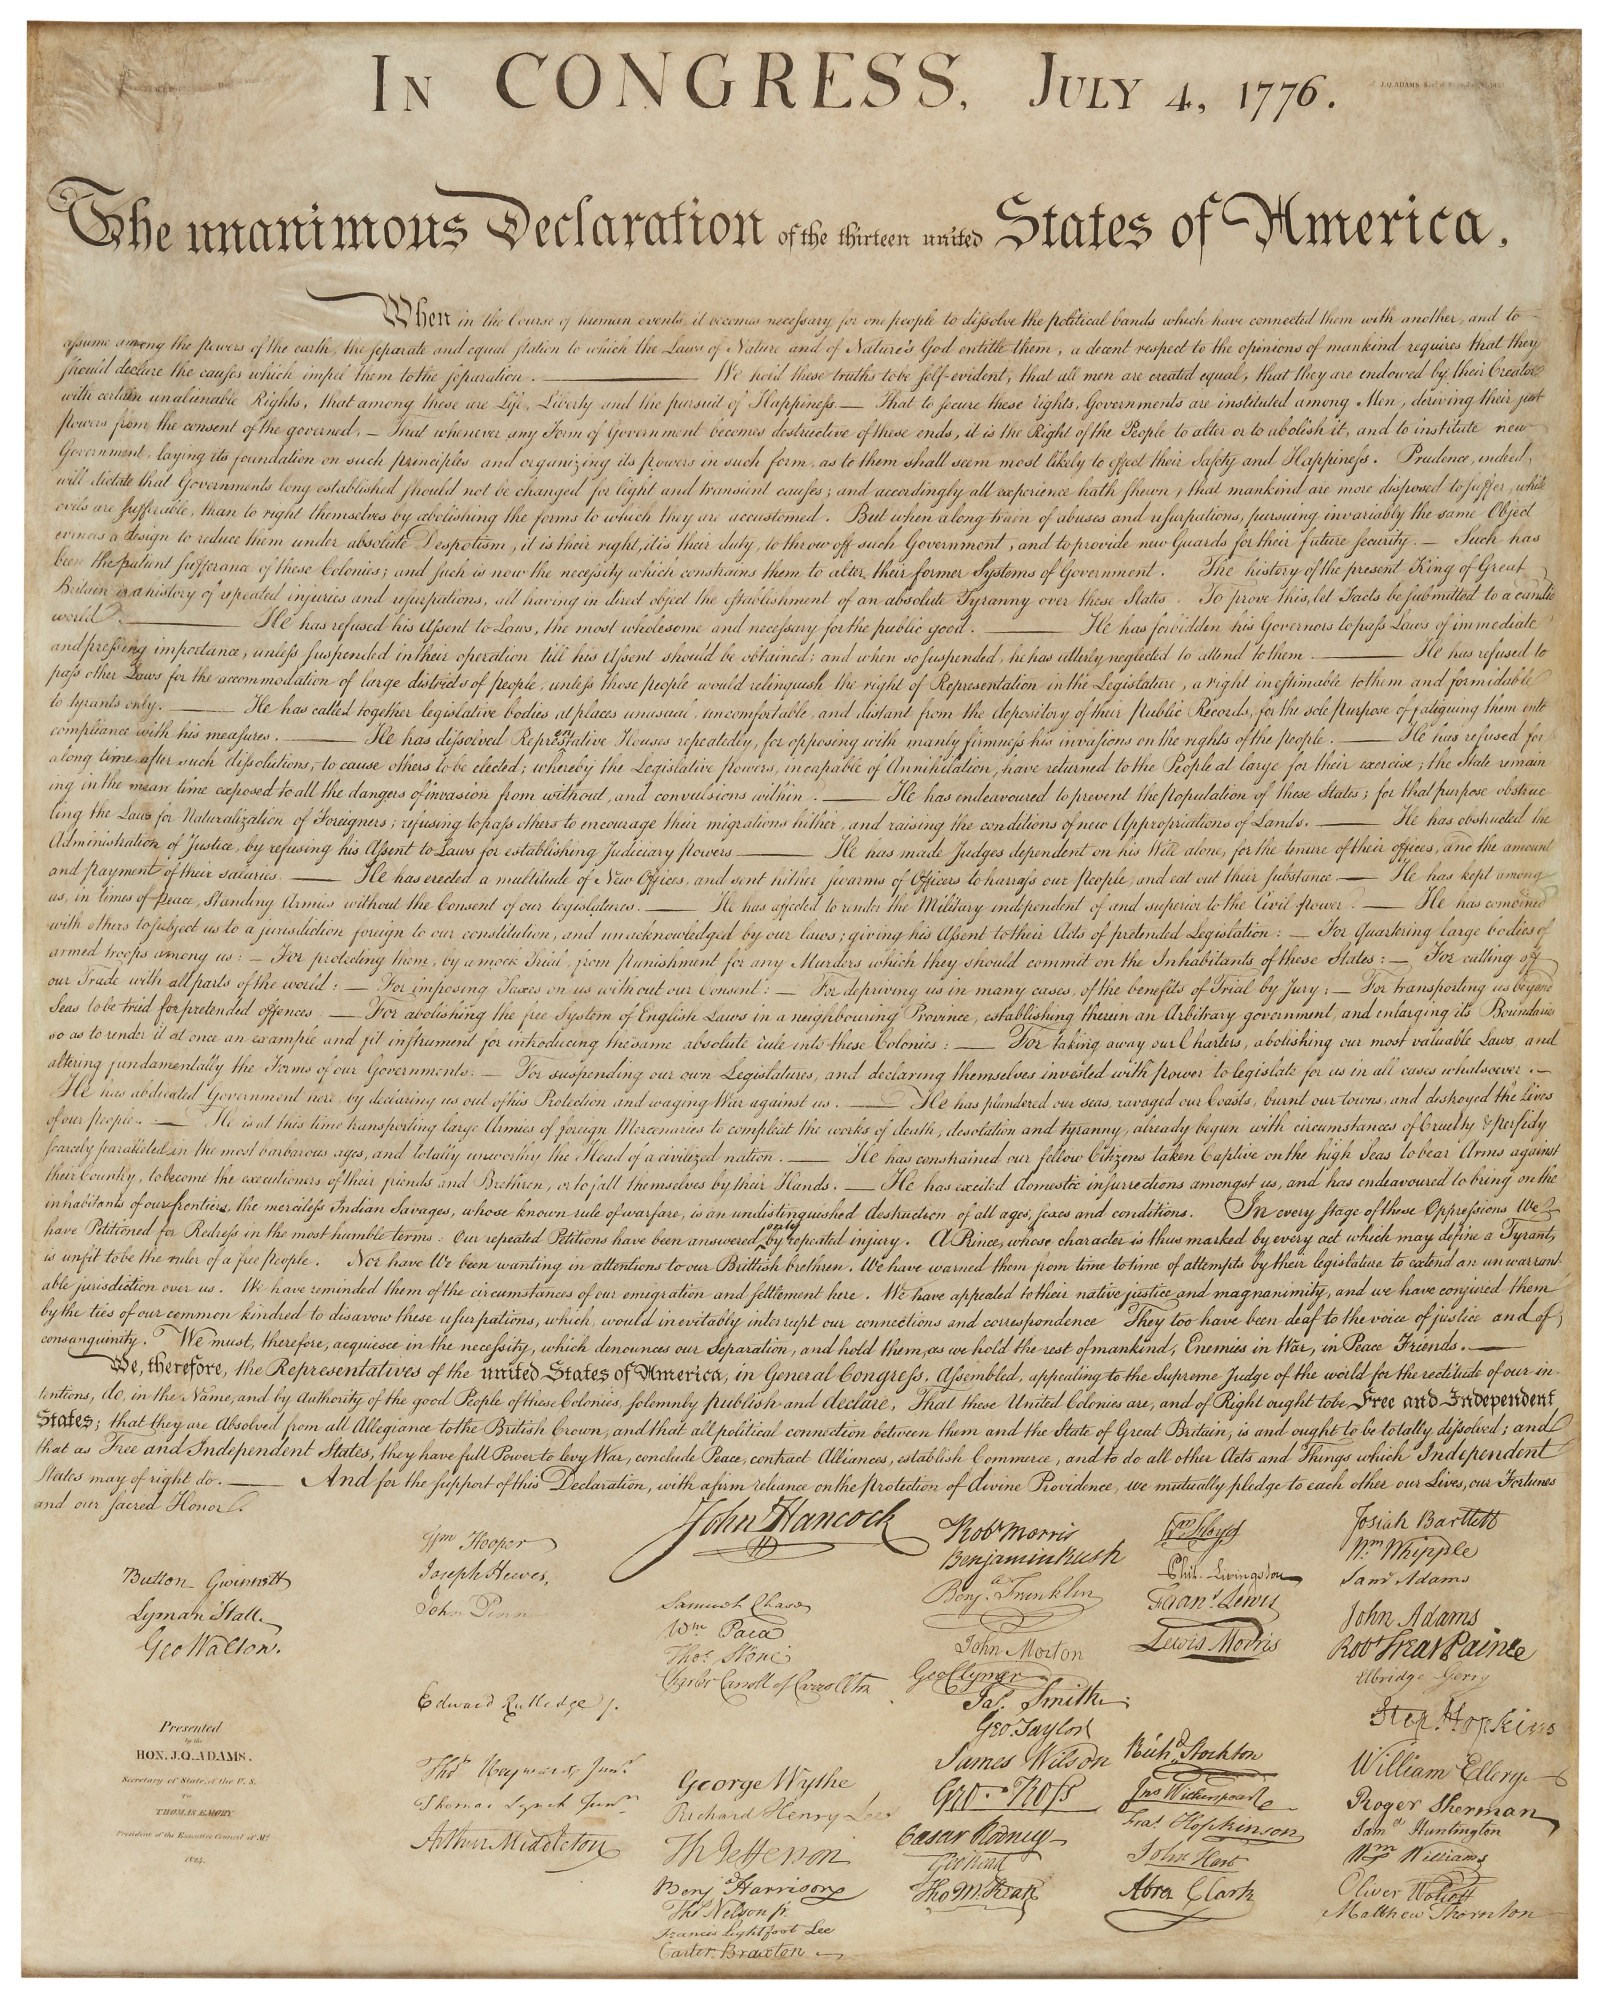 J.Q. ADAMS
IN CONGRESS, JULY 4, 1776.
The unanimous Declaration of the thirteen united States of America,
When in the Course of human events, it becomes necessary for one people to dissolve the political bands which have connected them with another, and to
assume among the powers of the earth, the separate and equal station to which the Laws of Nature and of Nature's God entitle them, a decent respect to the opinions of mankind requires that they
should declare the causes which impel them to the separation. — We hold these truths to be self-evident, that all men are created equal, that they are endowed by their Creator
with certain unalienable Rights, that among these are Life, Liberty and the pursuit of Happiness. — That to secure these rights, Governments are instituted among Men, deriving their just
powers from the consent of the governed, — That whenever any Form of Government becomes destructive of these ends, it is the Right of the People to alter or to abolish it, and to institute new
Government, laying its foundation on such principles and organizing its powers in such form, as to them shall seem most likely to effect their Safety and Happiness. Prudence, indeed,
will dictate that Governments long established should not be changed for light and transient causes; and accordingly all experience hath shewn, that mankind are more disposed to suffer, while
evils are sufferable, than to right themselves by abolishing the forms to which they are accustomed. But when a long train of abuses and usurpations, pursuing invariably the same Object
evinces a design to reduce them under absolute Despotism, it is their right, it is their duty, to throw off such Government, and to provide new Guards for their future security. — Such has
been the patient sufferance of these Colonies; and such is now the necessity which constrains them to alter their former Systems of Government. The history of the present King of Great
Britain is a history of repeated injuries and usurpations, all having in direct object the establishment of an absolute Tyranny over these States. To prove this, let Facts be submitted to a candid
world. — He has refused his Assent to Laws, the most wholesome and necessary for the public good. — He has forbidden his Governors to pass Laws of immediate
and pressing importance, unless suspended in their operation till his Assent should be obtained; and when so suspended, he has utterly neglected to attend to them. — He has refused to
pass other Laws for the accommodation of large districts of people, unless those people would relinquish the right of Representation in the Legislature, a right inestimable to them and formidable
to tyrants only. — He has called together legislative bodies at places unusual, uncomfortable, and distant from the depository of their Public Records, for the sole purpose of fatiguing them into
compliance with his measures. — He has dissolved Representative Houses repeatedly, for opposing with manly firmness his invasions on the rights of the people. — He has refused for
a long time, after such dissolutions, to cause others to be elected; whereby the Legislative powers, incapable of Annihilation, have returned to the People at large for their exercise; the State remain
ing in the mean time exposed to all the dangers of invasion from without, and convulsions within. — He has endeavoured to prevent the population of these States; for that purpose obstruc
ting the Laws for Naturalization of Foreigners; refusing to pass others to encourage their migrations hither, and raising the conditions of new Appropriations of Lands. — He has obstructed the
Administration of Justice, by refusing his Assent to Laws for establishing Judiciary powers — He has made Judges dependent on his Will alone, for the tenure of their offices, and the amount
and payment of their salaries. — He has erected a multitude of New Offices, and sent hither swarms of Officers to harrass our People, and eat out their substance — He has kept among
us, in times of peace, Standing Armies without the Consent of our legislatures. — He has affected to render the Military independent of and superior to the Civil power. — He has combined
with others to subject us to a jurisdiction foreign to our constitution, and unacknowledged by our laws; giving his Assent to their Acts of pretended Legislation: — For quartering large bodies of
armed troops among us: — For protecting them, by a mock Trial, from punishment for any Murders which they should commit on the Inhabitants of these States: — For cutting off
our Trade with all parts of the world: — For imposing Taxes on us without our Consent: — For depriving us in many cases, of the benefits of Trial by Jury: — For transporting us beyond
Seas to be tried for pretended offences — For abolishing the free System of English Laws in a neighbouring Province, establishing therein an Arbitrary government, and enlarging its Boundaries
so as to render it at once an example and fit instrument for introducing the same absolute rule into these Colonies: — For taking away our Charters, abolishing our most valuable Laws, and
altering fundamentally the Forms of our Governments: — For suspending our own Legislatures, and declaring themselves invested with power to legislate for us in all cases whatsoever. —
He has abdicated Government here, by declaring us out of his Protection and waging War against us. — He has plundered our seas, ravaged our Coasts, burnt our towns, and destroyed the Lives
of our people. — He is at this time transporting large Armies of foreign Mercenaries to compleat the works of death, desolation and tyranny, already begun with circumstances of Cruelty & perfidy
scarcely paralleled in the most barbarous ages, and totally unworthy the Head of a civilized nation. — He has constrained our fellow Citizens taken Captive on the high Seas to bear Arms against
their Country, to become the executioners of their friends and Brethren, or to fall themselves by their Hands. — He has excited domestic insurrections amongst us, and has endeavoured to bring on the
inhabitants of our frontiers, the merciless Indian Savages, whose known rule of warfare, is an undistinguished destruction of all ages, sexes and conditions. In every stage of these Oppressions We
have Petitioned for Redress in the most humble terms: Our repeated Petitions have been answered only by repeated injury. A Prince, whose character is thus marked by every act which may define a Tyrant,
is unfit to be the ruler of a free people. Nor have We been wanting in attentions to our Brittish brethren. We have warned them from time to time of attempts by their legislature to extend an unwarrant-
able jurisdiction over us. We have reminded them of the circumstances of our emigration and settlement here. We have appealed to their native justice and magnanimity, and we have conjured them
by the ties of our common kindred to disavow these usurpations, which, would inevitably interrupt our connections and correspondence They too have been deaf to the voice of justice and of
consanguinity. We must, therefore, acquiesce in the necessity, which denounces our Separation, and hold them, as we hold the rest of mankind, Enemies in War, in Peace Friends. —
We, therefore, the Representatives of the united States of America, in General Congress, Assembled, appealing to the Supreme Judge of the world for the rectitude of our in-
tentions, do, in the Name, and by Authority of the good People of these Colonies, solemnly publish and declare, That these United Colonies are, and of Right ought to be Free and Independent
States; that they are Absolved from all Allegiance to the British Crown, and that all political connection between them and the State of Great Britain, is and ought to be totally dissolved; and
that as Free and Independent States, they have full Power to levy War, conclude Peace, contract Alliances, establish Commerce, and to do all other Acts and Things which Independent
States may of right do. — And for the support of this Declaration, with a firm reliance on the protection of divine Providence, we mutually pledge to each other our Lives, our Fortunes
and our sacred Honor.
Button Gwinnett
Lyman Hall
Geo Walton.
Presented
by the
HON. J.Q. ADAMS.
Secretary of State, of the U.S.
TO
THOMAS EMORY
President of the Executive Council of Md
1824.
Wm Hooper
Joseph Hewes,
John Penn
Edward Rutledge
Thos Heyward Junr
Thomas Lynch Junr
Arthur Middleton
John Hancock
Samuel Chase
Wm Paca
Thos Stone
Charles Carroll of Carrollton
George Wythe
Richard Henry Lee
Th Jefferson
Benj Harrison
Thos Nelson jr.
Francis Lightfoot Lee
Carter Braxton
Robt Morris
Benjamin Rush
Benj. Franklin
John Morton
Geo Clymer
Jas. Smith
Geo. Taylor
James Wilson
Geo. Ross
Caesar Rodney
Geo Read
Tho M:Kean
Wm Floyd
Phil. Livingston
Frans. Lewis
Lewis Morris
Richd. Stockton
Jno Witherspoon
Fras. Hopkinson
John Hart
Abra Clark
Josiah Bartlett
Wm Whipple
Saml Adams
John Adams
Robt Treat Paine
Elbridge Gerry
Step. Hopkins
William Ellery
Roger Sherman
Saml Huntington
Wm Williams
Oliver Wolcott
Matthew Thornton